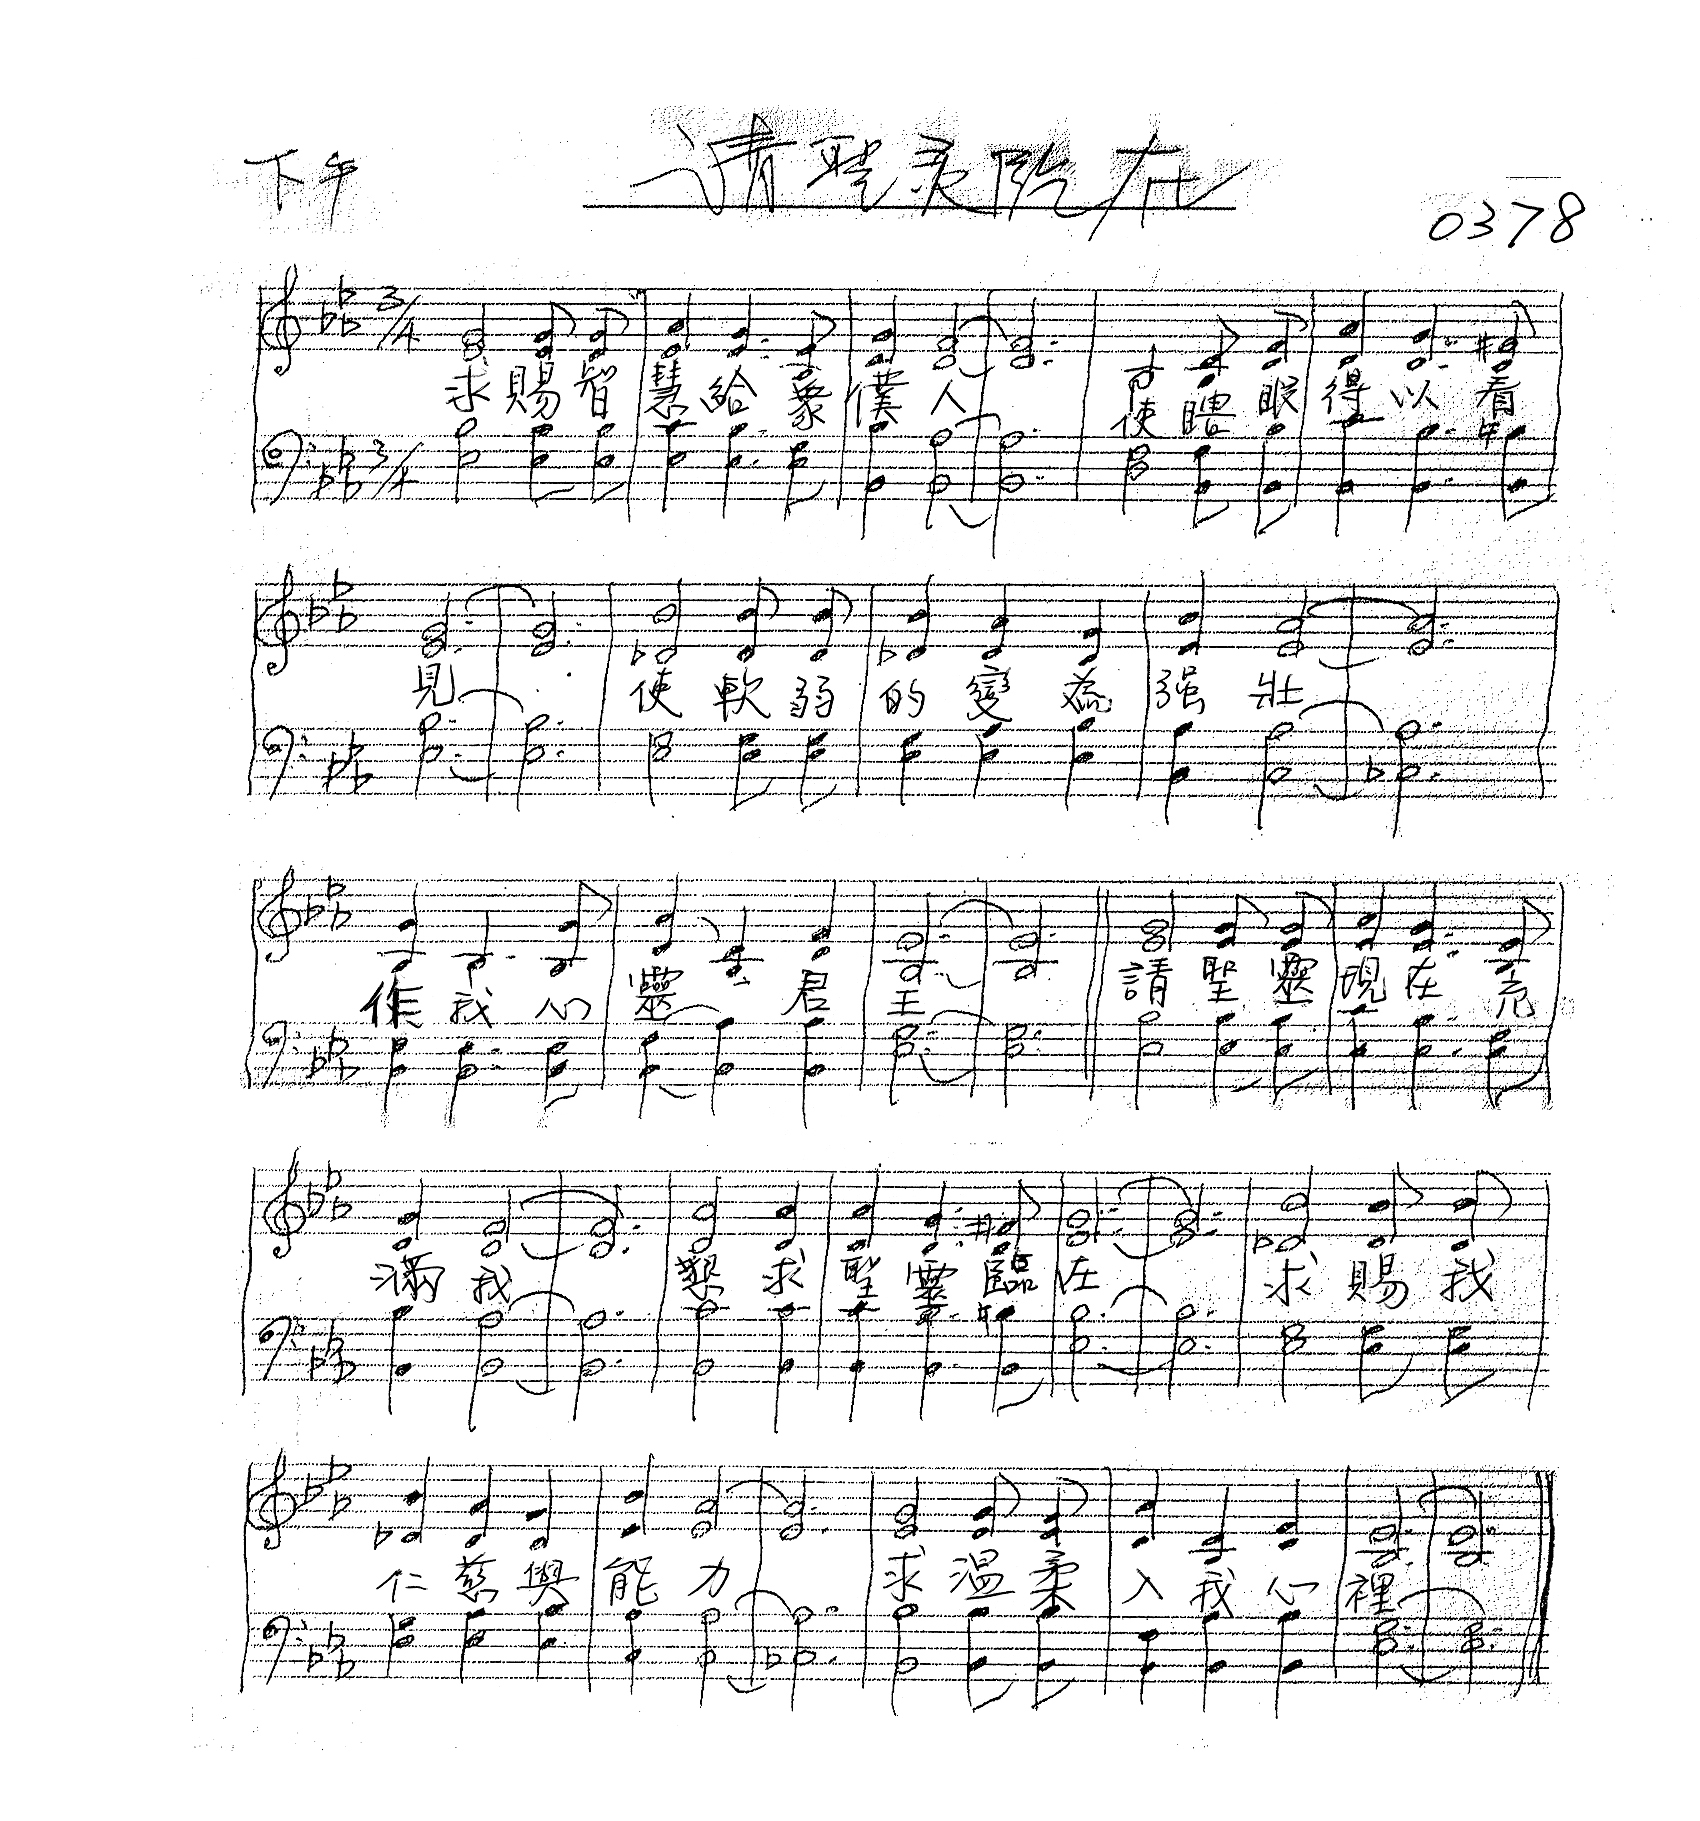 下午
请聖灵临在
0378
3/4
求賜智慧給衆僕人 使瞎眼得以看
3/4
見 使軟弱的變為强壯
作我心靈君王 請聖靈現在充
滿我 懇求聖靈臨在 求賜我
仁慈與能力 求温柔入我心裡